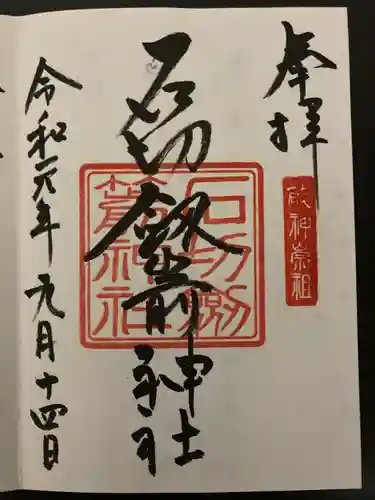 奉拝
敬神崇祖
石切劔箭神社
石切劔
箭神社
令和元年九月十四日